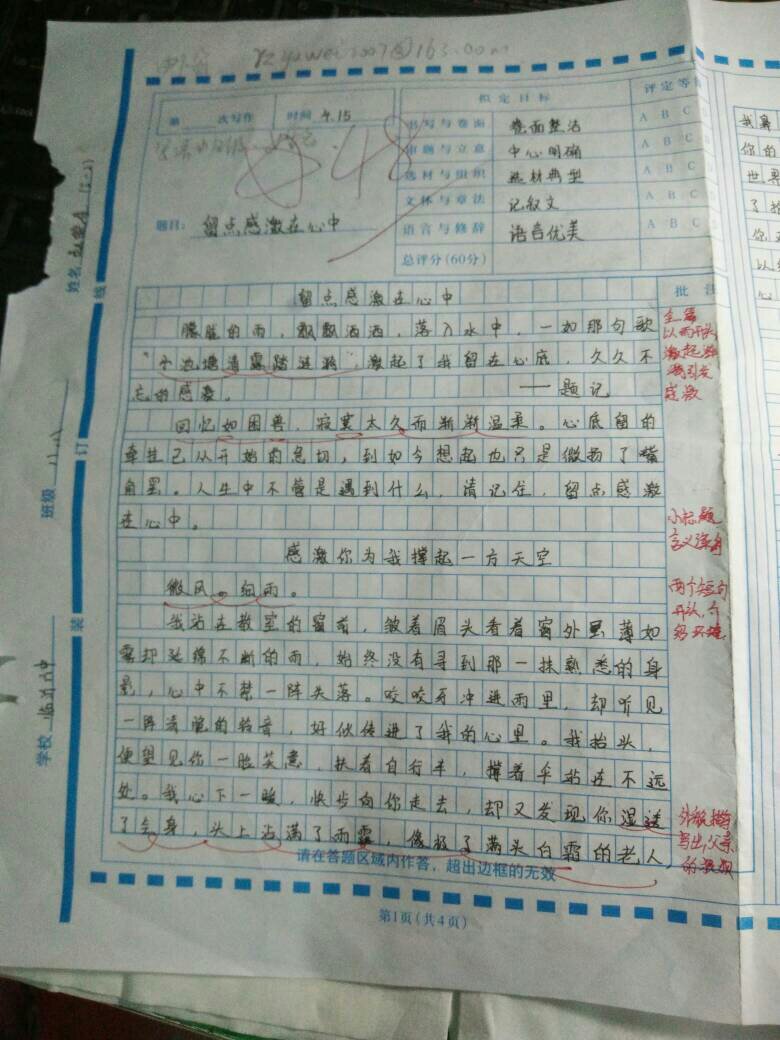 yzyawei2007@163.com
第 次写作 时间 4.15
48
题目: 留点感激在心中
拟定目标 评定等级
书写与卷面 卷面整洁 A B C
审题与立意 中心明确 A B C
选材与组织 选材典型 A B C
文体与章法 记叙文 A B C
语言与修辞 语言优美 A B C
总评分(60分)
姓名
班级
学校 临沂六中
装 订 线
批注
留点感激在心中
朦胧的雨,飘飘洒洒,落入水中,一如那句歌
激起了我留在心底,久久不
忘的感褱。 ——题记
回忆如困兽,寂寞太久而渐渐温柔。心底留的
牵挂已从开始的急切,到如今想起也只是微扬了嘴
角罢。人生中不管是遇到什么,请记住,留点感激
在心中。
感激你为我撑起一方天空
微风。细雨。
我站在教室的窗前,皱着眉头看着窗外果薄如
雾却延绵不断的雨,始终没有寻到那一抹熟悉的身
影,心中不禁一阵失落。咬咬牙冲进雨里,却听见
一阵清脆的铃音,好似传进了我的心里。我抬头,
便望见你一脸笑意,扶着自行车,撑着伞站在不远
处。我心下一暖,快步向你走去,却又发现你湿透
了全身,头上沾满了雨露,像极了满头白霜的老人,
全篇
以雨开头
激起
引发
感激
小标题
两个短句
开头,介
绍环境
外貌描写
写出父亲
的
请在答题区域内作答,超出边框的无效
第1页(共4页)
我鼻
你的
世界
了
你
以
心